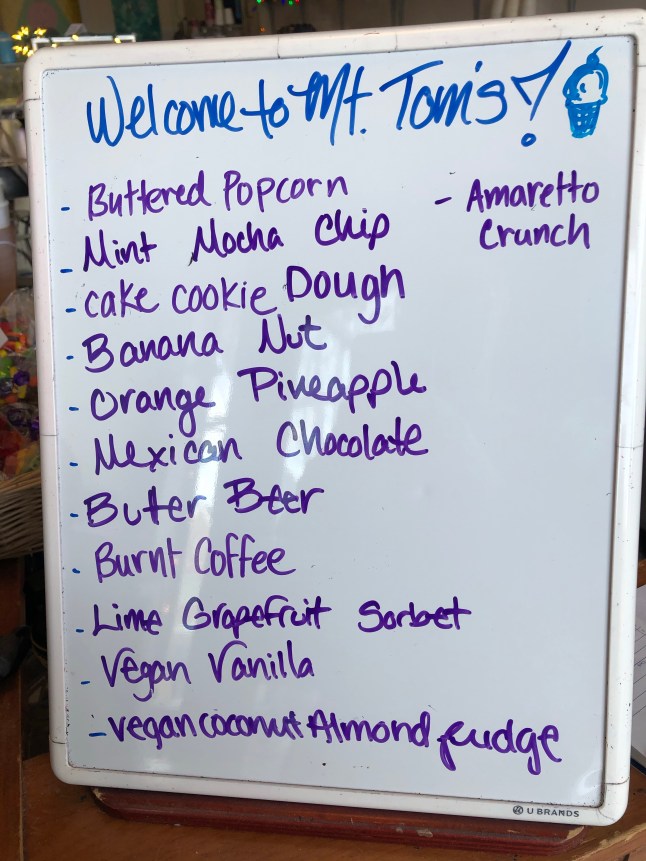 Welcome to Mt. Tom's!
- Buttered Popcorn
- Mint Mocha Chip
- cake cookie Dough
- Banana Nut
- Orange Pineapple
- Mexican Chocolate
- Buter Beer
- Burnt Coffee
- Lime Grapefruit Sorbet
- Vegan Vanilla
- vegan coconut Almond fudge
- Amaretto
Crunch
U BRANDS